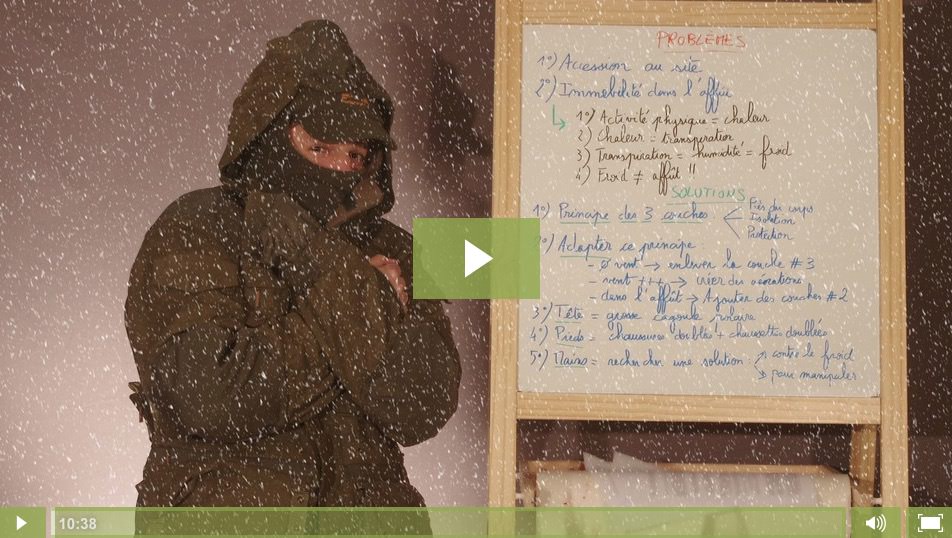 PROBLÈMES
1°) Accession au site
2°) Immobilité dans l'affût
1°) Activité physique = chaleur
2) Chaleur = transpiration
3) Transpiration = humidité = froid
4) Froid ≠ affût !!
SOLUTIONS
1°) Principe des 3 couches
Près du corps
Isolation
Protection
2°) Adapter ce principe :
- Ø vent → enlever la couche #3
- vent +++ → créer des aérations
- dans l'affût → Ajouter des couches #2
3°) Tête = grosse cagoule polaire
4°) Pieds = chaussures doublés + chaussettes doublées
5°) Mains = rechercher une solution :
contre le froid
pour manipuler
10:38